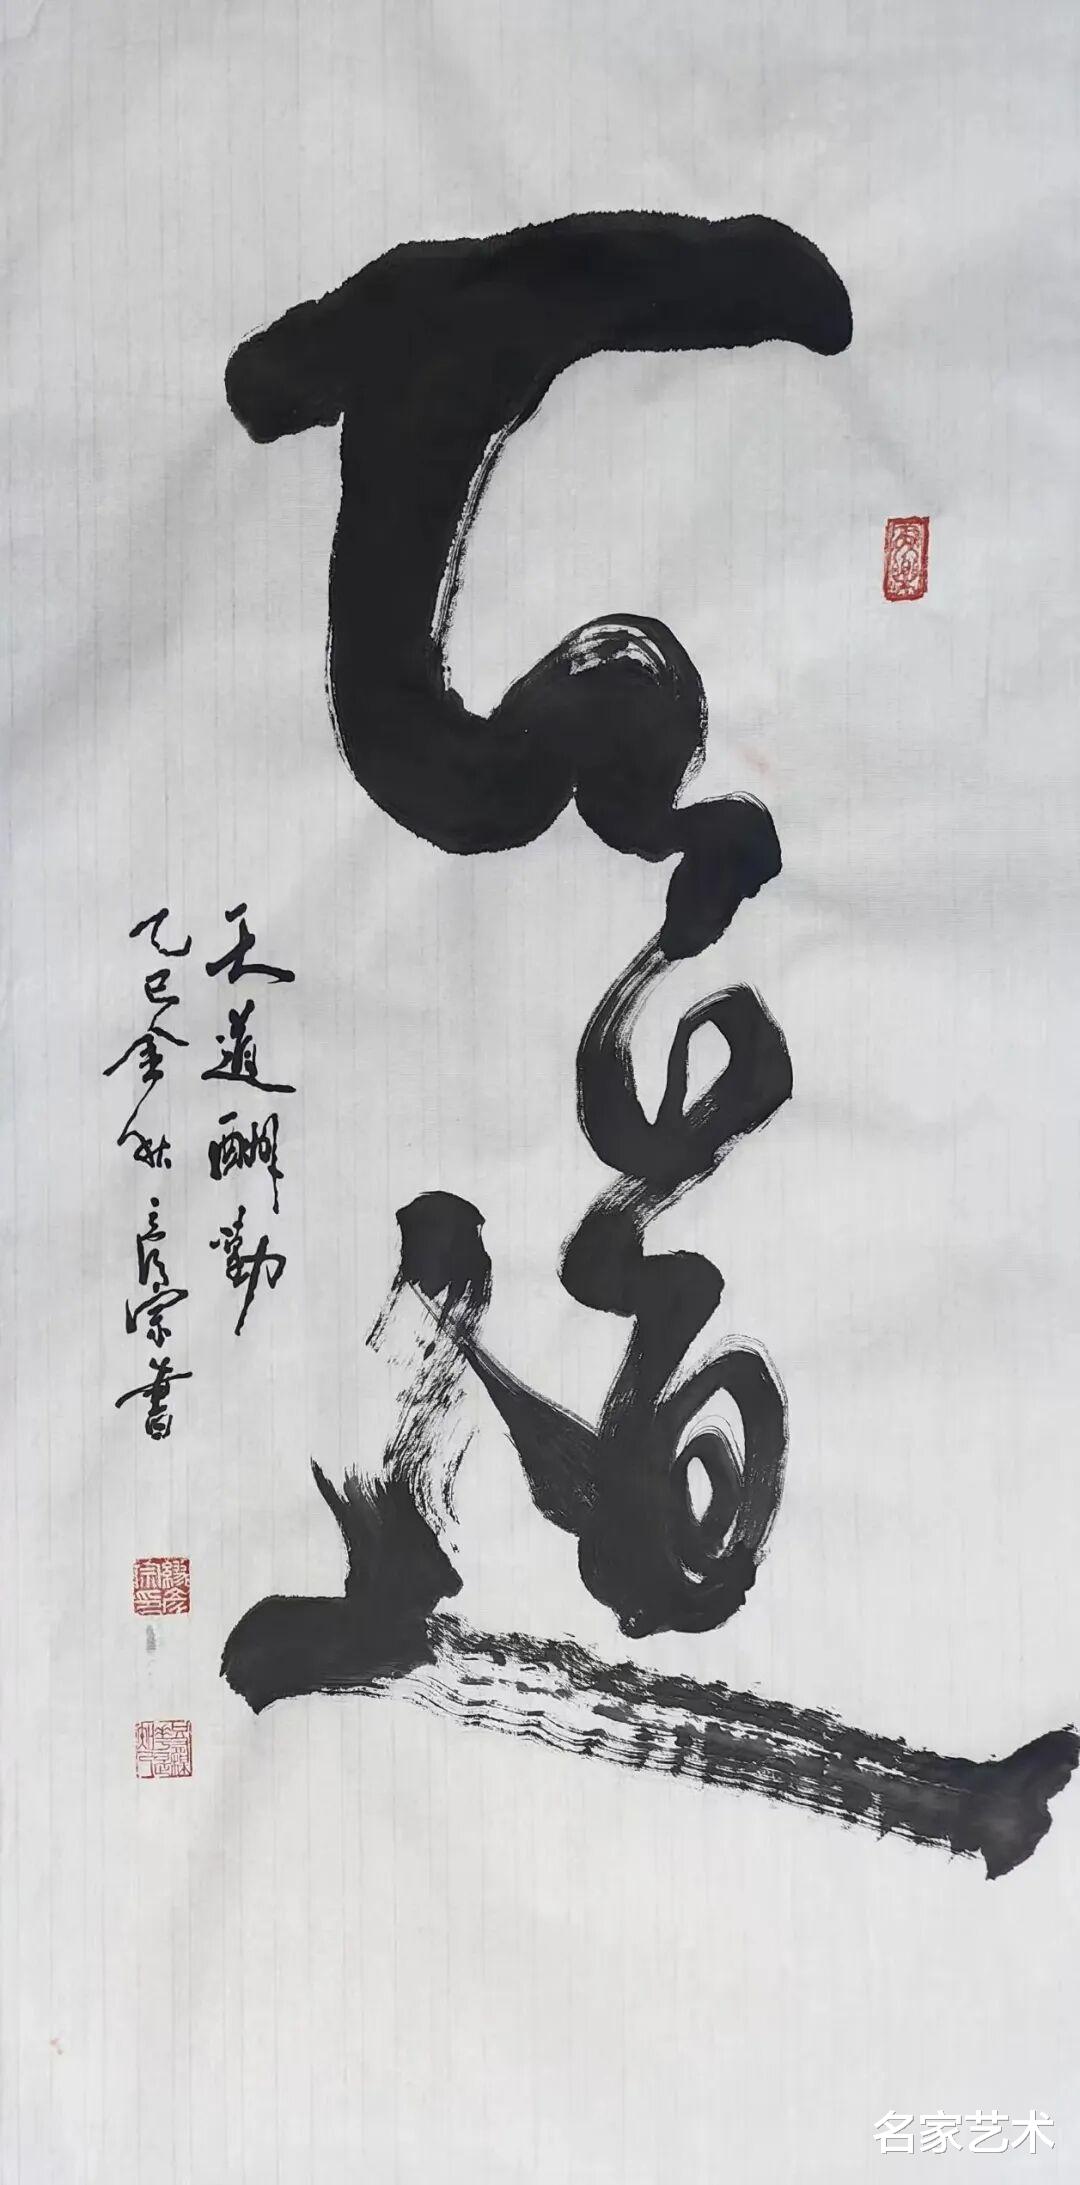 天道
天道酬勤
乙巳金秋彦宗書
名家艺术